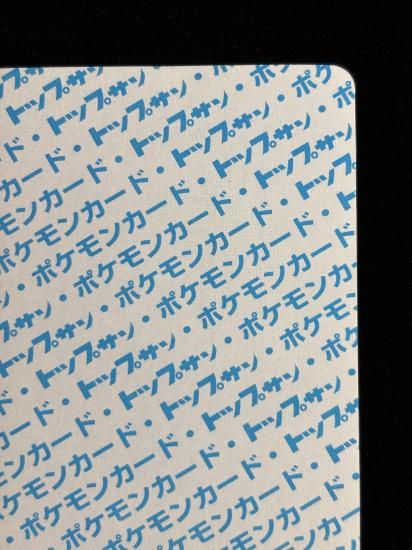 トップサン
ド・トップサン・ポケ
カード・トップサン・ポケ
ンカード・トップサン・ポ
モンカード・トップサン・
ポケモンカード・トップサン
・ポケモンカード・トップ
サン・ポケモンカード・ト
プサン・ポケモンカード・
トップサン・ポケモンカー
・トップサン・ポケモン
ード・トップサン・ポケモ
カード・トップサン・
ンカード・トップサン・
モンカード・トップサン
ケモンカード・トップ
・ポケモンカード・ト